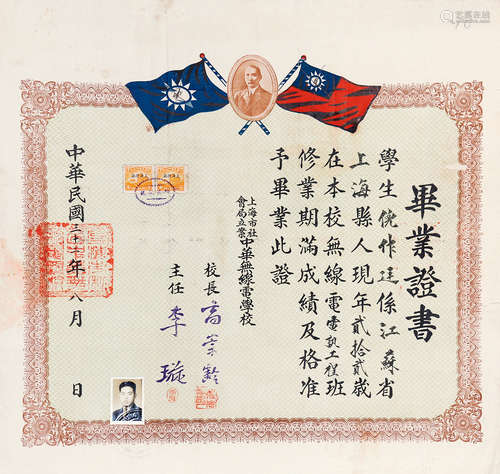 畢業證書
學生倪作廷係江蘇省
上海縣人現年貳拾貳歲
在本校無線電電訊工程班
修業期滿成績及格准
予畢業此證
上海市社
會局立案
中華無線電學校
校長
主任 李璇
中華民國三十 年八月 日